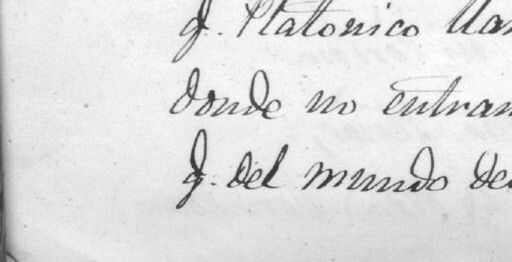 q. Platonico lla
donde no entran
q. del mundo de